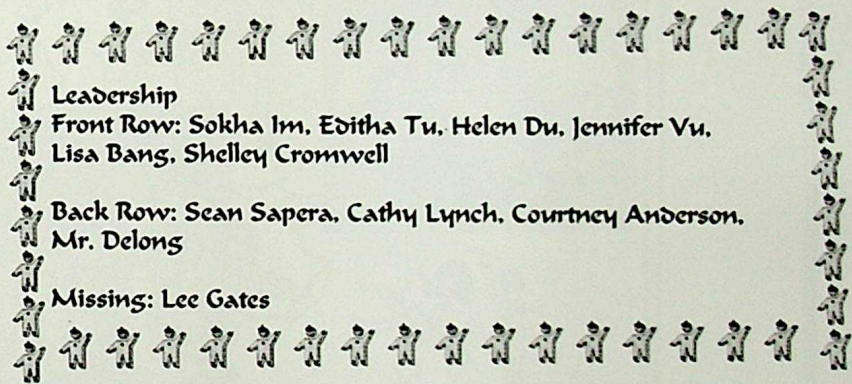 Leadership
Front Row: Sokha Im, Editha Tu, Helen Du, Jennifer Vu,
Lisa Bang, Shelley Cromwell
Back Row: Sean Sapera, Cathy Lynch, Courtney Anderson,
Mr. Delong
Missing: Lee Gates